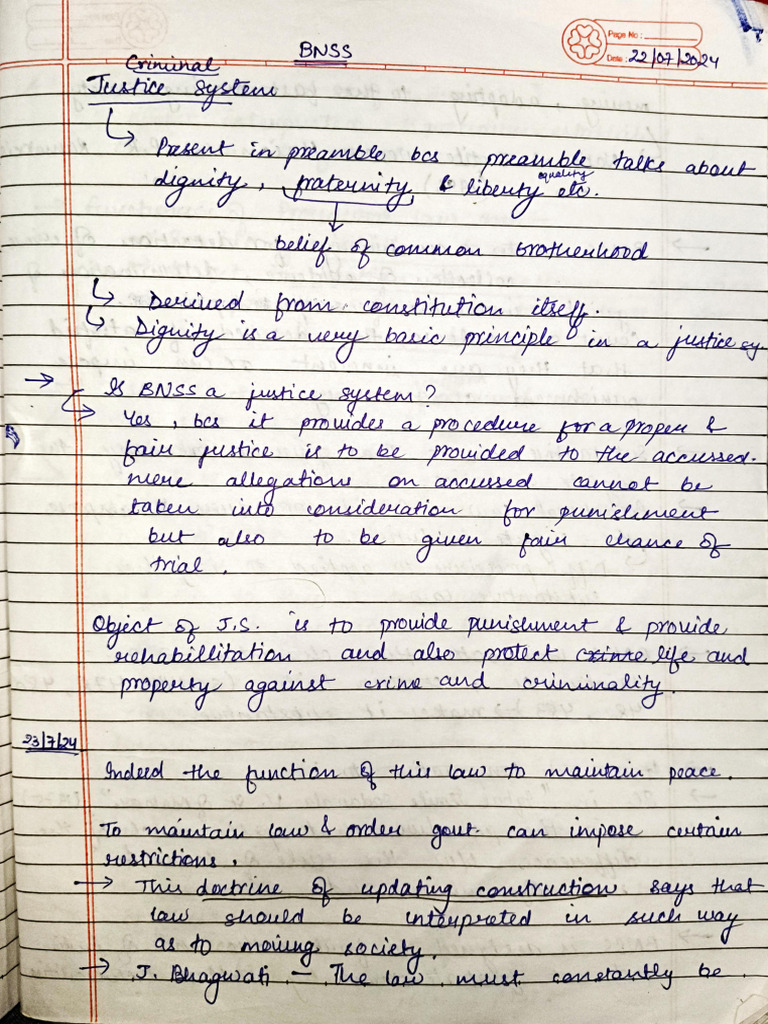 BNSS
Page No :
Date : 22/07/2024
Criminal
Justice System
Present in preamble bcs preamble talks about
dignity, fraternity & liberty equality etc.
belief of common brotherhood
Derived from constitution itself.
Dignity is a very basic principle in a justice sy.
Is BNSS a justice system?
Yes, bcs it provides a procedure for a proper &
fair justice is to be provided to the accussed.
mere allegations on accussed cannot be
taken into consideration for punishment
but also to be given fair chance of
trial.
Object of J.S. is to provide punishment & provide
rehabillitation and also protect crime life and
property against crime and criminality.
23/7/24
Indeed the function of this law to maintain peace.
To maintain law & order govt. can impose certain
restrictions.
This doctrine of updating construction says that
law should be interpreted in such way
as to moving society.
J. Bhagwati - The law must constantly be